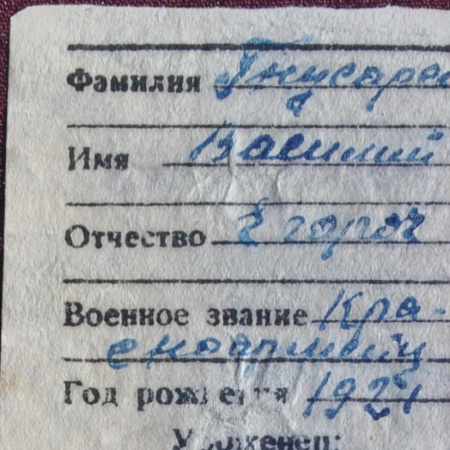 Фамилия Гнусарев
Имя Василий
Отчество Егороч
Военное звание Кра-
сноармеец
Год рождения 1921
Уроженец: